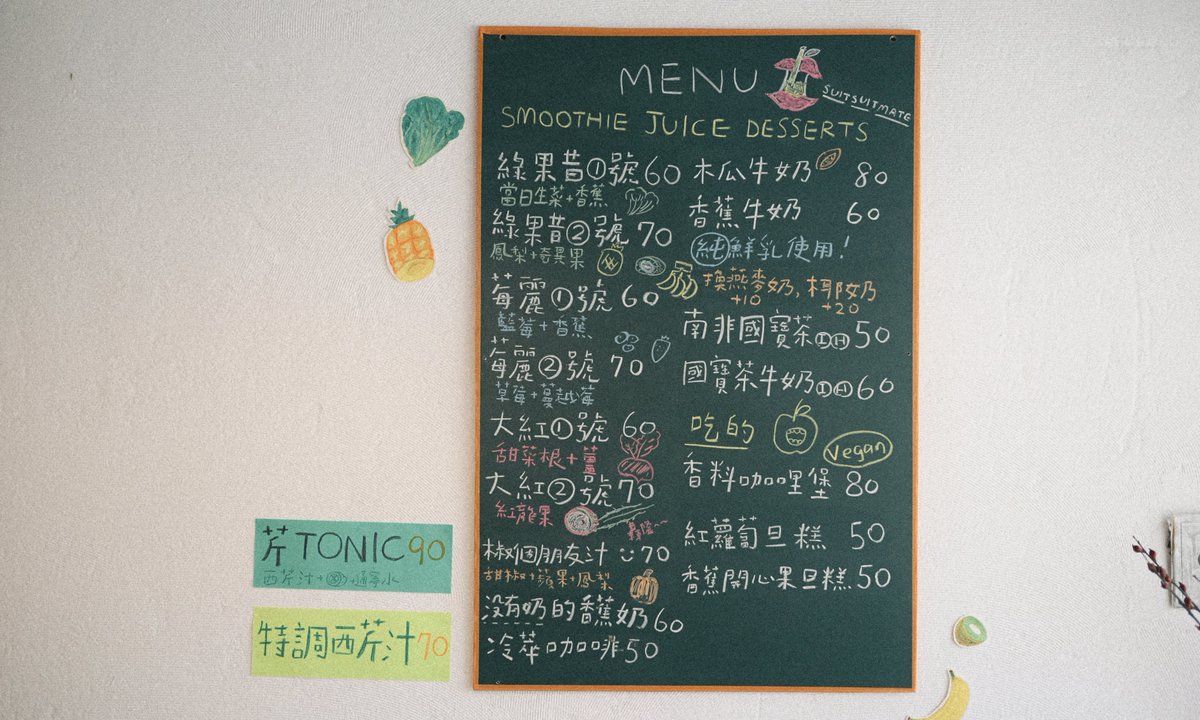 MENU
SUITSUITMATE
SMOOTHIE JUICE DESSERTS
綠果昔①號 60
當日生菜+香蕉
綠果昔②號 70
鳳梨+奇異果
莓麗①號 60
藍莓+香蕉
莓麗②號 70
草莓+蔓越莓
大紅①號 60
甜菜根+薑
大紅②號 70
紅龍果
椒個朋友汁 70
甜椒+蘋果+鳳梨
沒有奶的香蕉奶 60
冷萃咖啡 50
木瓜牛奶 80
香蕉牛奶 60
純鮮乳使用!
換燕麥奶, 椰奶
+10 +20
南非國寶茶ⒾⒽ 50
國寶茶牛奶ⒾⒽ 60
吃的
Vegan
香料咖哩堡 80
紅蘿蔔旦糕 50
香蕉開心果旦糕 50
芹TONIC 90
西芹汁+ +通寧水
特調西芹汁 70